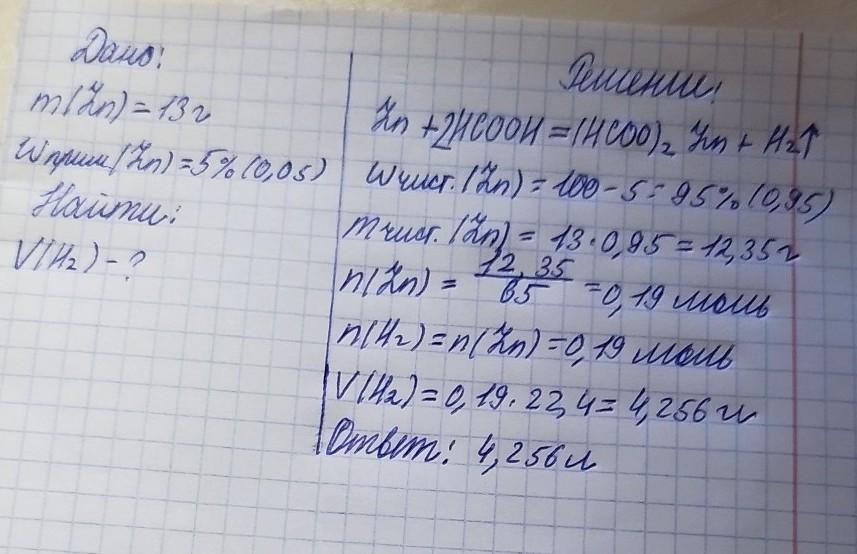 Дано:
m(Zn) = 13 г
Wприм(Zn) = 5% (0,05)
Найти:
V(H₂) - ?
Решение:
Zn + 2HCOOH = (HCOO)₂ Zn + H₂↑
Wчист. (Zn) = 100 - 5 = 95% (0,95)
m чист. (Zn) = 13 · 0,95 = 12,35 г
n(Zn) = 12,35 / 65 = 0,19 моль
n(H₂) = n(Zn) = 0,19 моль
V(H₂) = 0,19 · 22,4 = 4,256 л
Ответ: 4,256 л